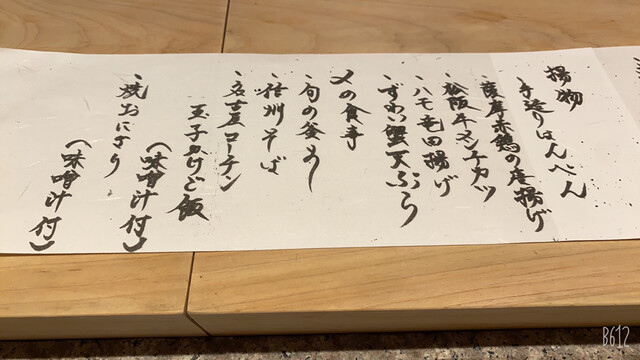 揚物
、手造りはんぺん
、薩摩赤鶏の唐揚げ
、松阪牛メンチカツ
、ハモ竜田揚げ
、ずわい蟹天ぷら
〆の食事
、旬の釜めし
、信州そば
、名古屋コーチン
玉子かけご飯
(味噌汁付)
、焼おにぎり
(味噌汁付)
B612